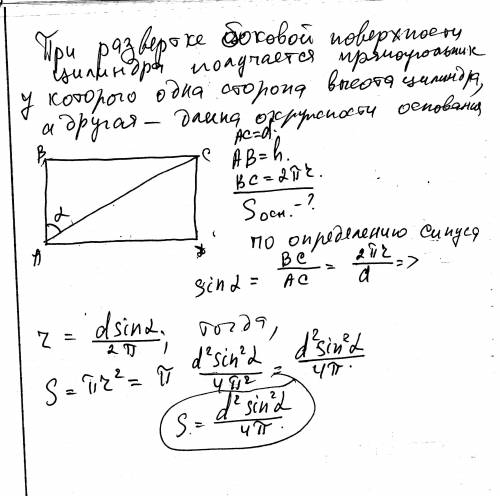 При развертке боковой поверхности
цилиндра получается прямоугольник
у которого одна сторона высота цилиндра,
а другая — длина окружности основания
AC=d.
B C AB=h.
BC=2πr.
α Sосн.-?
A
по определению синуса
sinα = BC/AC = 2πr/d =>
r = dsinα/2π; тогда,
S = πr² = π d²sin²α/4π² = d²sin²α/4π.
S = d²sin²α/4π.